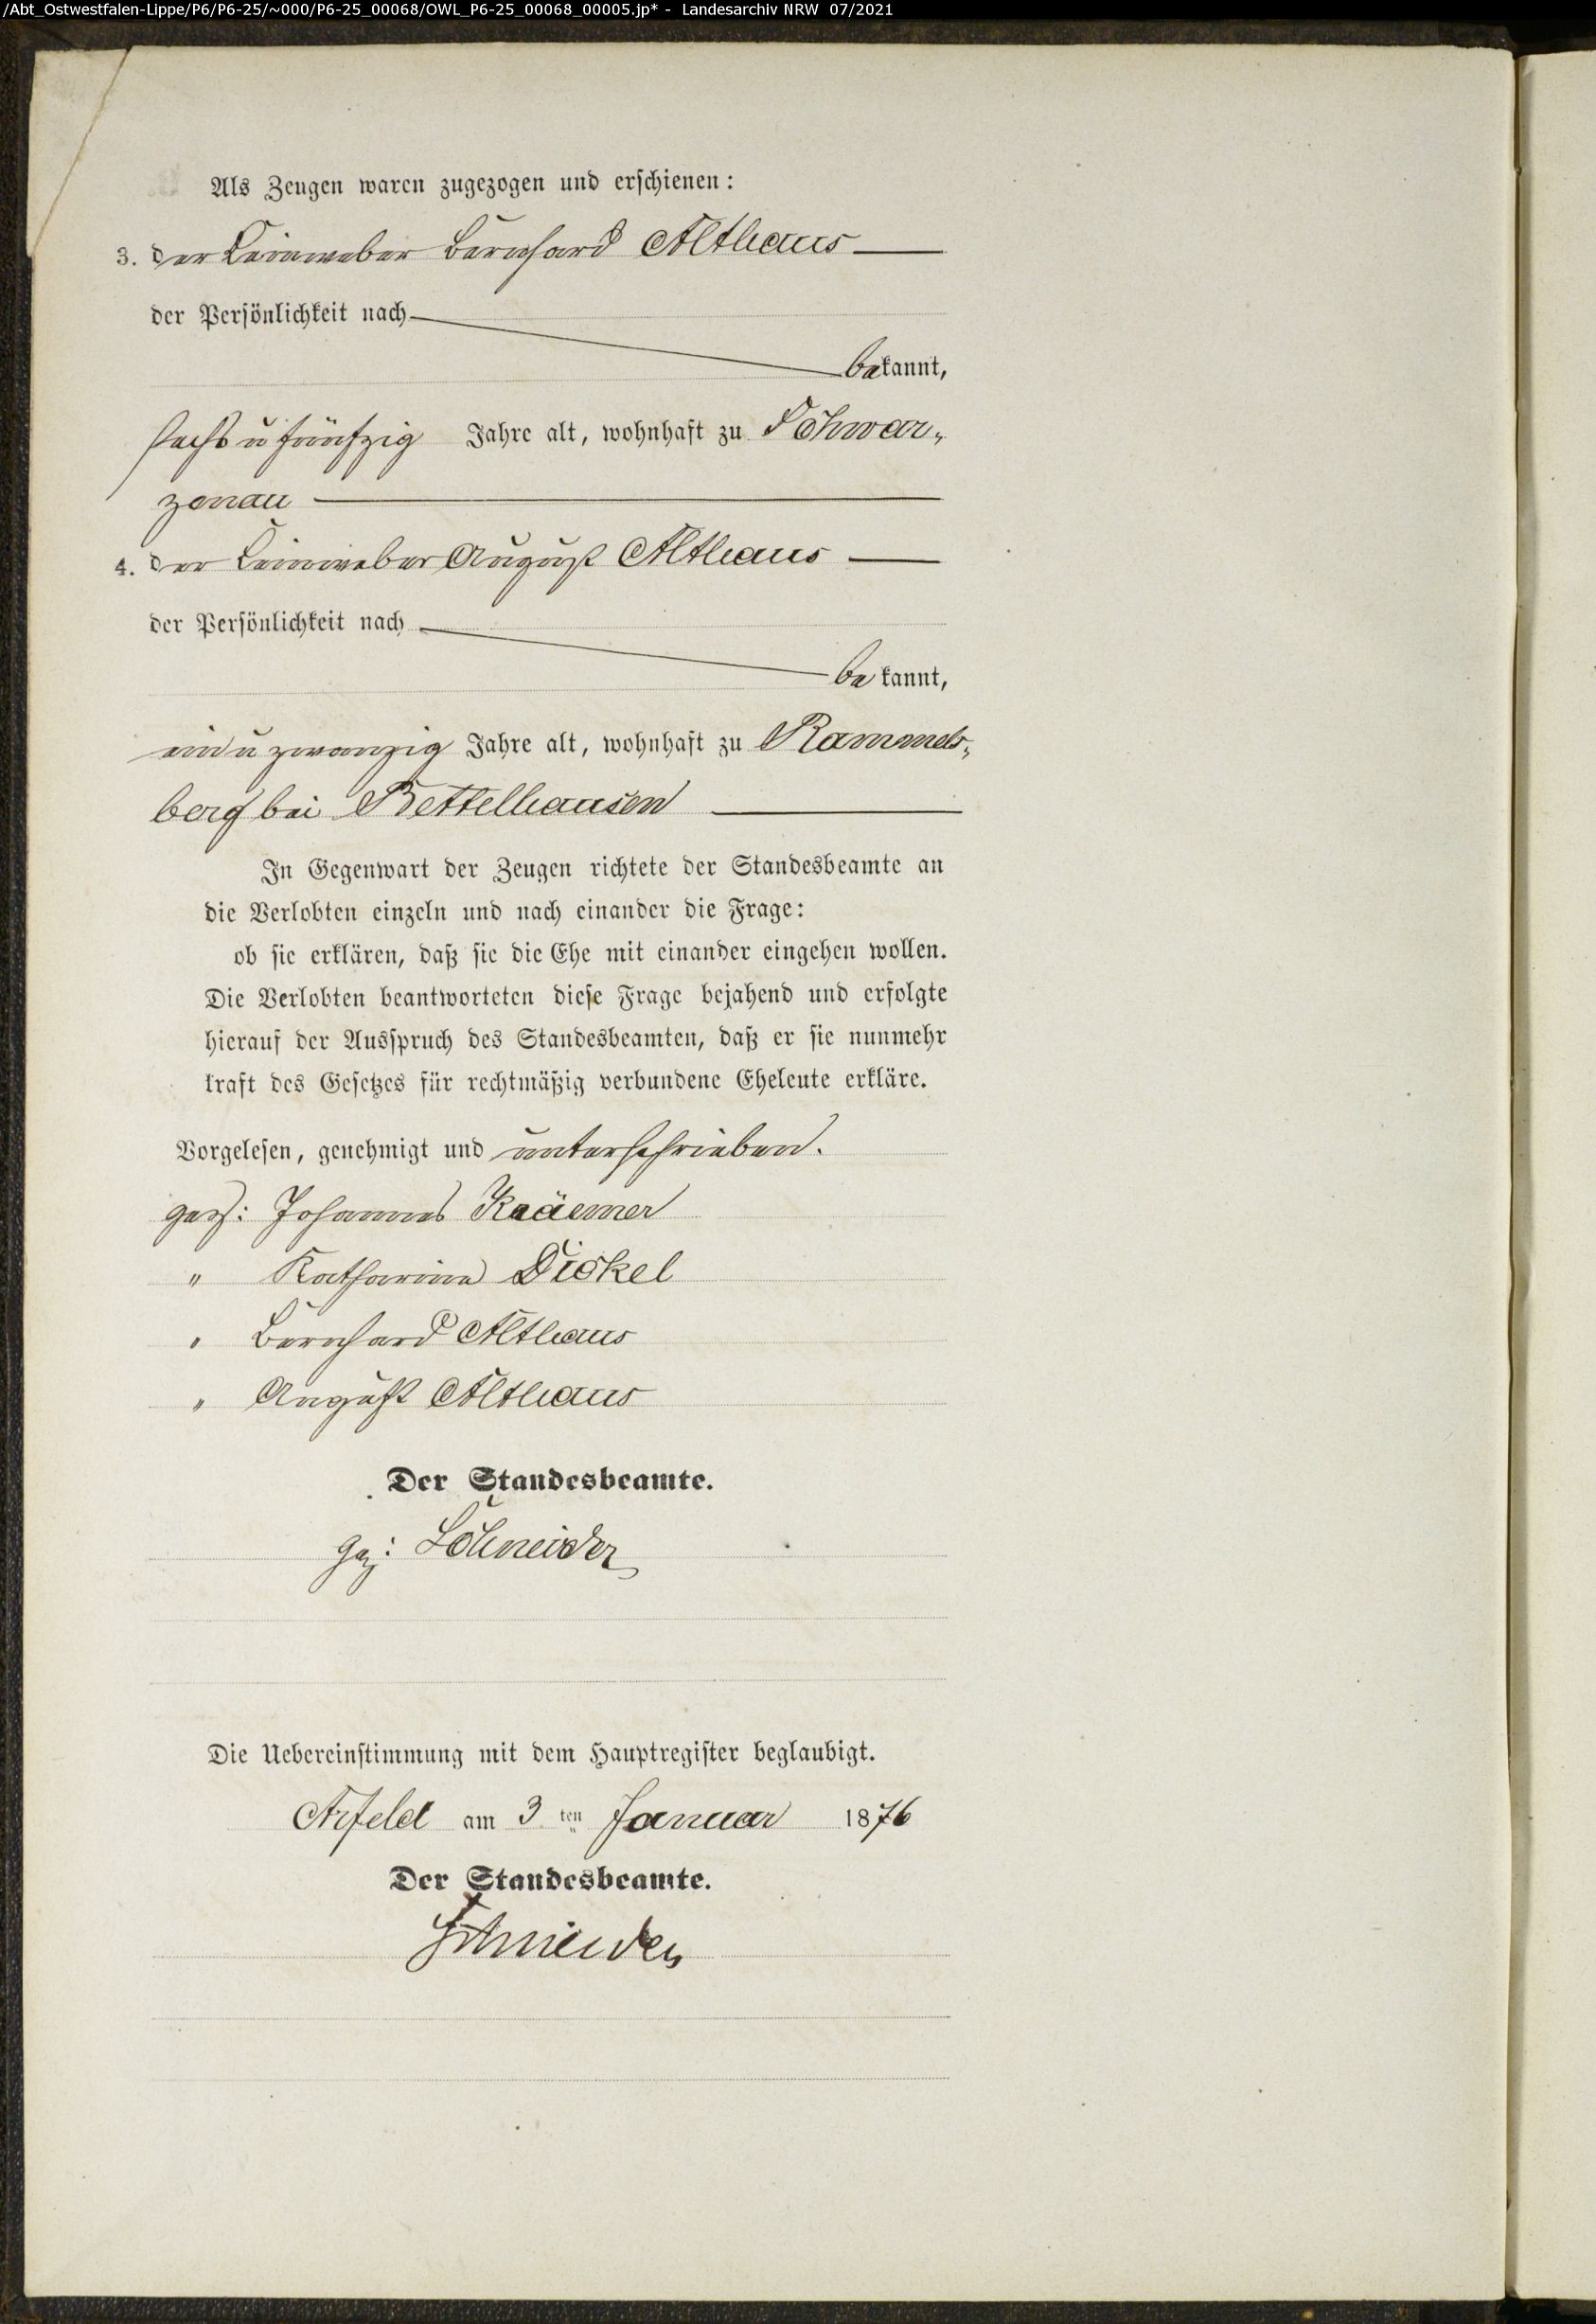 /Abt_Ostwestfalen-Lippe/P6/P6-25/~000/P6-25_00068/OWL_P6-25_00068_00005.jp* - Landesarchiv NRW 07/2021
Als Zeugen waren zugezogen und erschienen:
3. der Leineweber Bernhard Althaus
der Persönlichkeit nach
bekannt,
sechs u fünfzig Jahre alt, wohnhaft zu Schwar„
zenau
4. der Leineweber August Althaus
der Persönlichkeit nach
bekannt,
ein u zwanzig Jahre alt, wohnhaft zu Rammels„
berg bei Bettelhausen
In Gegenwart der Zeugen richtete der Standesbeamte an
die Verlobten einzeln und nach einander die Frage:
ob sie erklären, daß sie die Ehe mit einander eingehen wollen.
Die Verlobten beantworteten diese Frage bejahend und erfolgte
hierauf der Ausspruch des Standesbeamten, daß er sie nunmehr
kraft des Gesetzes für rechtmäßig verbundene Eheleute erkläre.
Vorgelesen, genehmigt und unterschrieben.
gez: Johannes Kraemer
„ Katharina Dickel
„ Bernhard Althaus
„ August Althaus
Der Standesbeamte.
gez: Schneider
Die Uebereinstimmung mit dem Hauptregister beglaubigt.
Arfeld am 3 ten Januar 1876
Der Standesbeamte.
Schneider